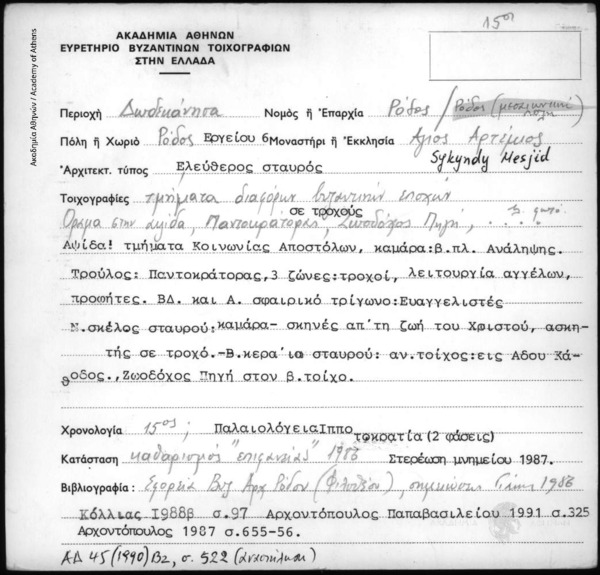 15ος
ΑΚΑΔΗΜΙΑ ΑΘΗΝΩΝ
ΕΥΡΕΤΗΡΙΟ ΒΥΖΑΝΤΙΝΩΝ ΤΟΙΧΟΓΡΑΦΙΩΝ
ΣΤΗΝ ΕΛΛΑΔΑ
Ακαδημία Αθηνών / Academy of Athens
Περιοχή Δωδεκάνησα Νομός ἤ Ἐπαρχία Ρόδος / Ρόδος (μεσαιωνική πόλη)
Πόλη ἤ Χωριό Ρόδος Εργείου 6 Μοναστήρι ἤ Ἐκκλησία Άγιος Αρτέμιος
Sykyndy Mesjid
Ἀρχιτεκτ. τύπος Ελεύθερος σταυρός
Τοιχογραφίες τμήματα διαφόρων βυζαντινών εποχών
Όραμα στην αψίδα, Παντοκράτορας, σε τροχούς Ζωοδόχος Πηγή, ....
Αψίδα! τμήματα Κοινωνίας Αποστόλων, καμάρα:β.πλ. Ανάληψης.
Τρούλος: Παντοκράτορας,3 ζώνες:τροχοί, λειτουργία αγγέλων,
προφήτες. ΒΔ. και Α. σφαιρικό τρίγωνο:Ευαγγελιστές
Ν.σκέλος σταυρού:καμάρα- σκηνές απ'τη ζωή του Χριστού, ασκη-
τής σε τροχό.-Β.κερα'ια σταυρού: αν.τοίχος:εις Αδου Κά-
θοδος., Ζωοδόχος Πηγή στον β.τοίχο.
Χρονολογία 15ος; ΠαλαιολόγειαΙππο τοκρατία (2 φάσεις)
Κατάσταση καθαρισμός "επιφανείας" 1986 Στερέωση μνημείου 1987.
Βιβλιογραφία: Εφορεία Βυζ Αρχ Ρόδου (Φιλοθέου), σημειώσεις 1986
Κόλλιας 1988β σ.97 Αρχοντόπουλος Παπαβασιλείου 1991 σ.325
Αρχοντόπουλος 1987 σ.655-56.
ΑΔ 45 (1990) Β2, σ. 522 (αναστήλωση)